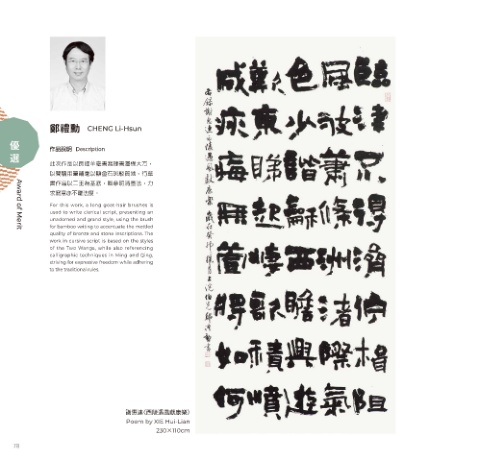 鄭禮勳 CHENG Li-Hsun
作品說明 Description
求表現而不離法度。
For this work, a long goat hair brushes is
used to write clerical script, presenting an
unadorned and grand style, using the brush
for bamboo writing to accentuate the mottled
quality of bronze and stone inscriptions. The
work in cursive script is based on the styles
of the Two Wangs, while also referencing
calligraphic techniques in Ming and Qing,
striving for expressive freedom while adhering
to the traditional rules.
優選
Award of Merit
臨津不得濟佇楫阻
風波蕭條洲渚際氣
色少諧龢西瞻興遊
歎東睇起悽歌積憤
成疢痗無萱將如何
謝惠連〈西陵遇風獻康樂〉
Poem by XIE Hui-Lian
230×110cm